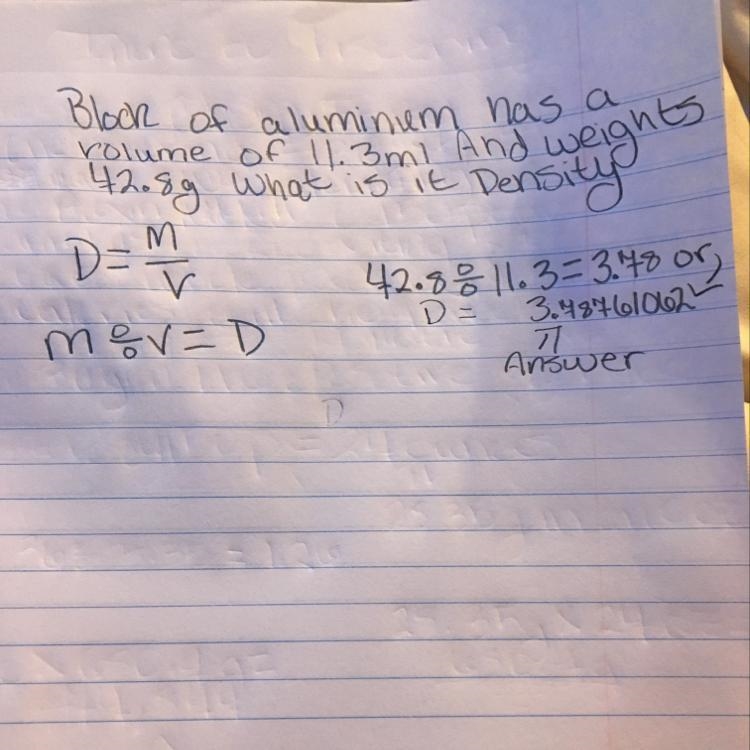 Block of aluminum has a
volume of 11.3ml And weights
42.8g What is it Density
D = M/V
42.8 ÷ 11.3 = 3.78 or
D = 3.78761062
m ÷ v = D
Answer